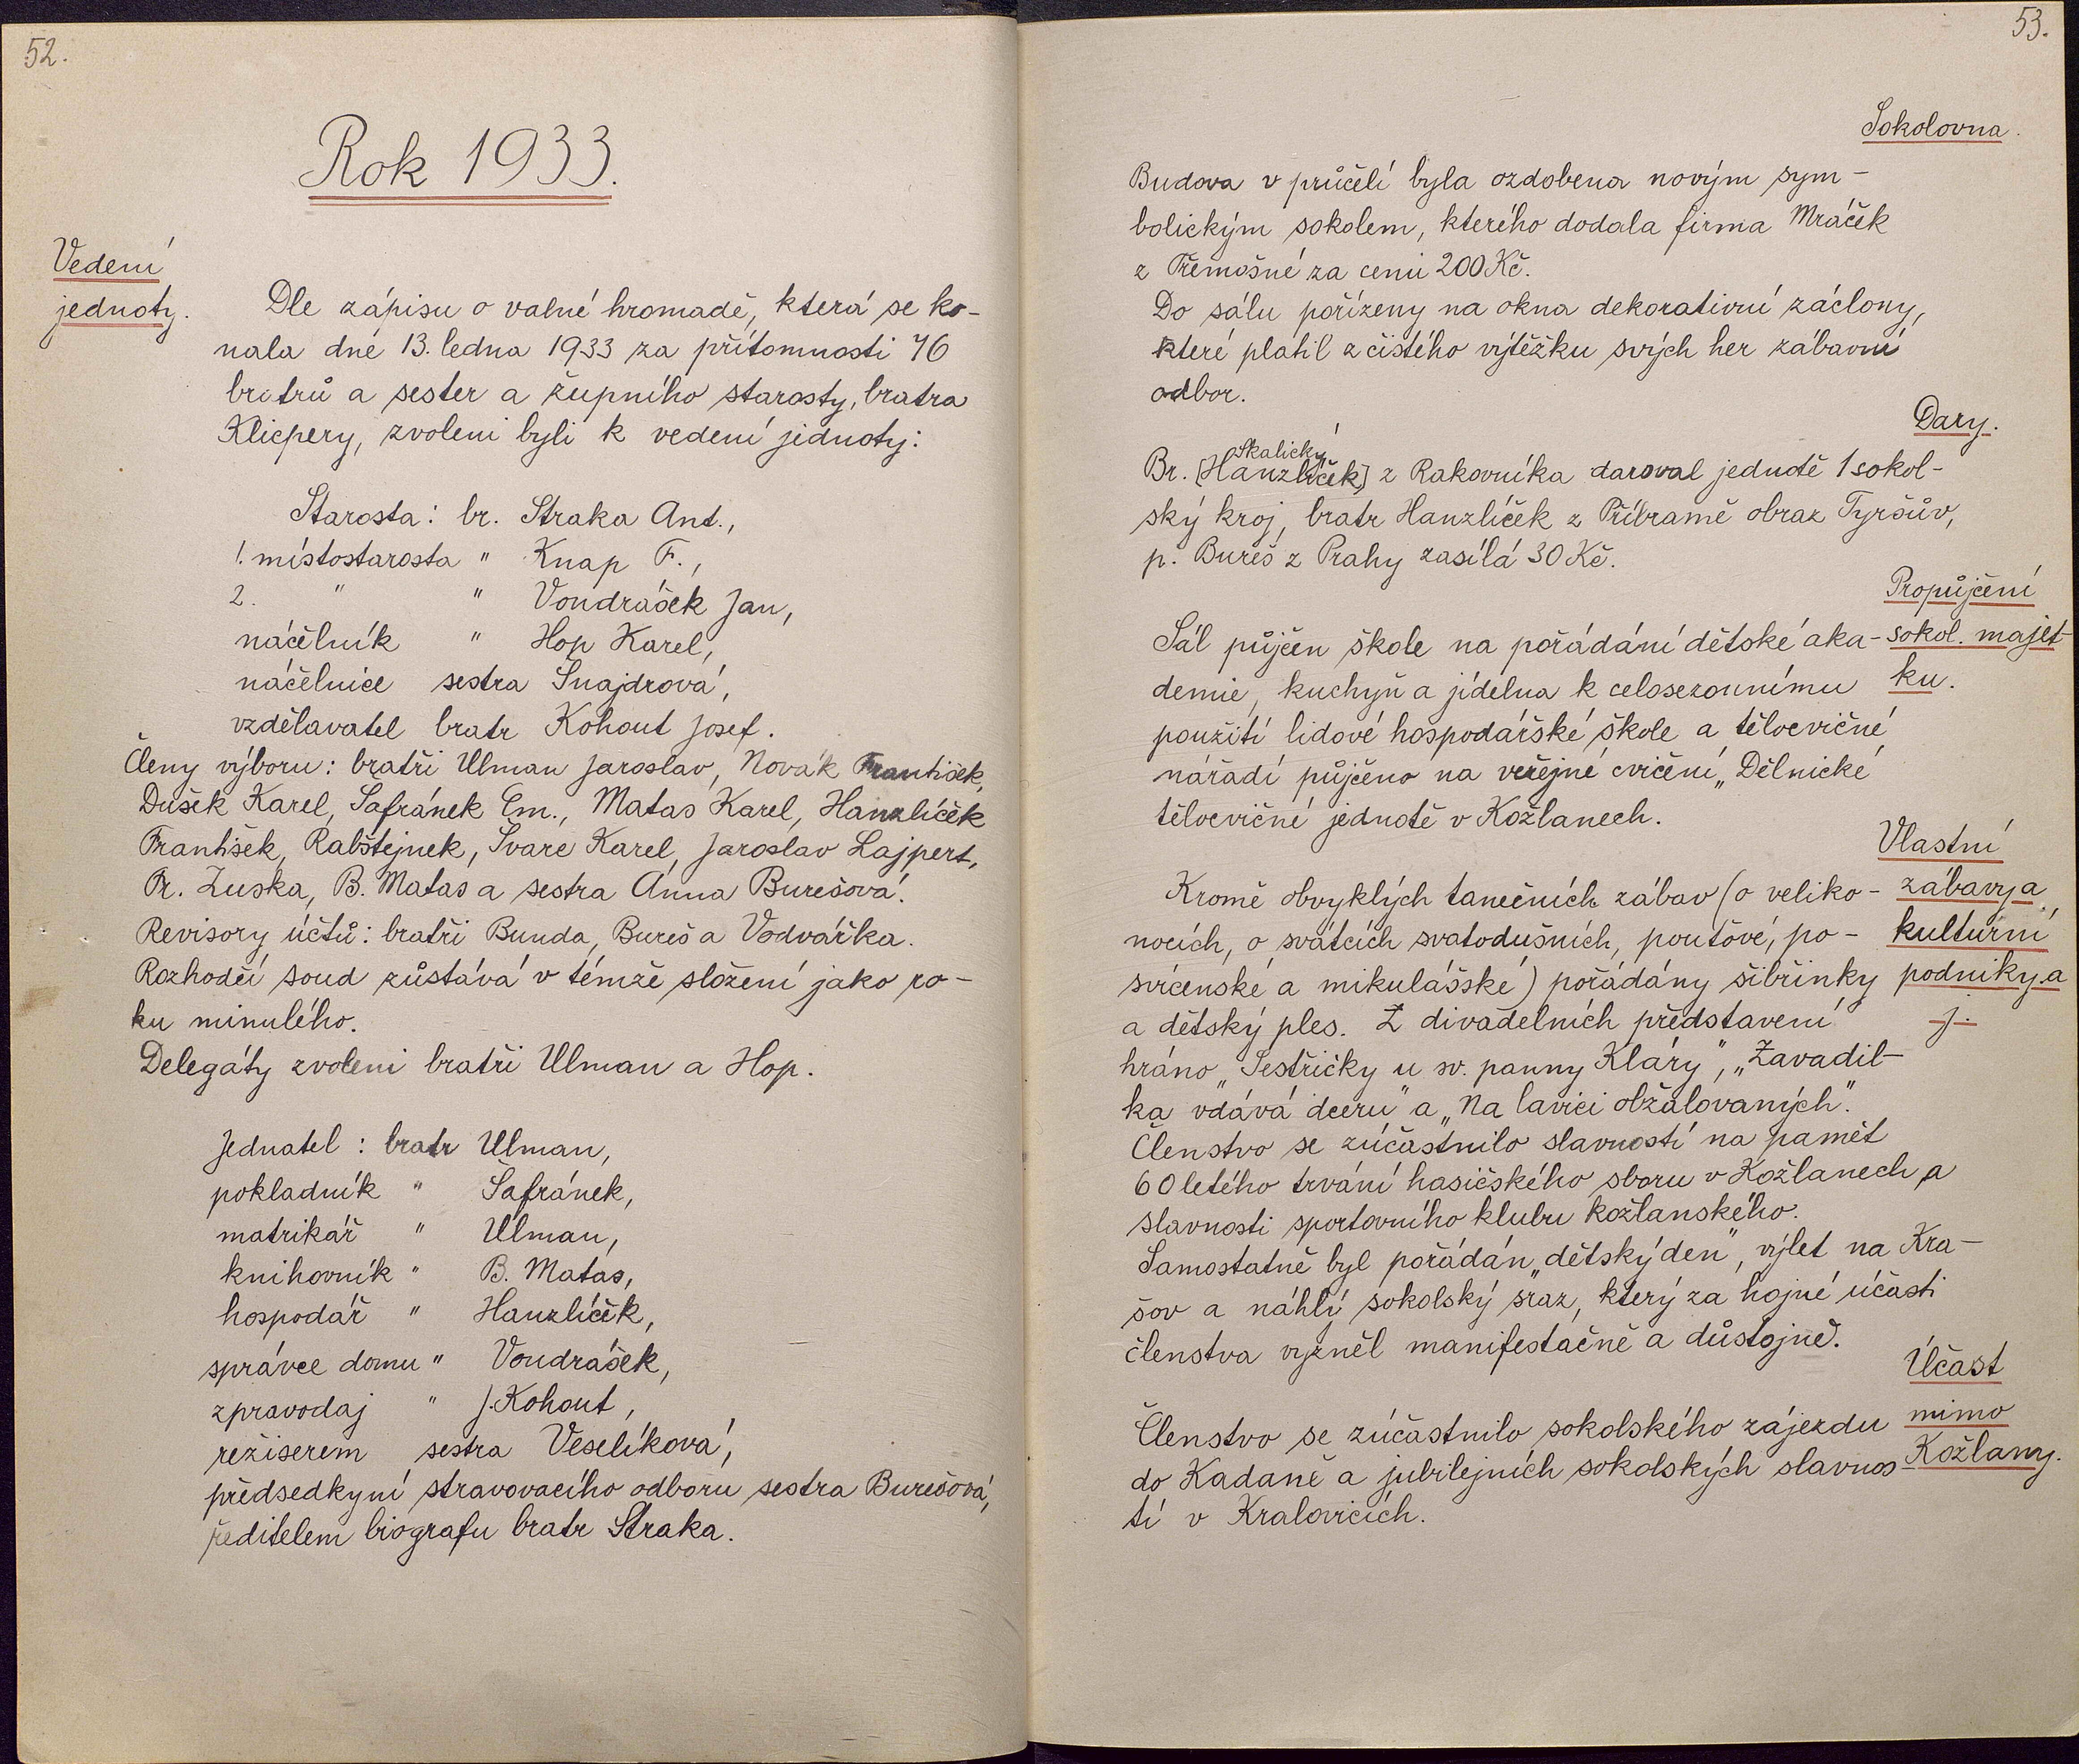 52.
Rok 1933.
Vedení
jednoty.
Dle zápisu o valné hromadě, která se ko-
nala dne 13. ledna 1933 za přítomnosti 46
bratrů a sester a župního starosty, bratra
Klicpery, zvoleni byli k vedení jednoty:
Starosta: br. Straka Ant.,
1. místostarosta " Knap F.,
2. " " Vondrášek Jan,
náčelník " Hop Karel,
náčelnice sestra Šnajdrová,
vzdělavatel bratr Kohout Josef.
Členy výboru: bratři Ulman Jaroslav, Novák František,
Dušek Karel, Šafránek Em., Matas Karel, Hanzlíček
František, Rabštejnek, Švarc Karel, Jaroslav Lajpert,
Fr. Zuska, B. Matas a sestra Anna Burešová.
Revisory účtů: bratři Bunda, Bureš a Vodvářka.
Rozhodčí soud zůstává v témže složení jako ro-
ku minulého.
Delegáty zvoleni bratři Ulman a Hop.
Jednatel: bratr Ulman,
pokladník " Šafránek,
matrikář " Ulman,
knihovník " B. Matas,
hospodář " Hanzlíček,
správce domu " Vondrášek,
zpravodaj " J. Kohout,
režiserem sestra Veselíková,
předsedkyní stravovacího odboru sestra Burešová,
ředitelem biografu bratr Straka.
53.
Sokolovna.
Budova v průčelí byla ozdobena novým sym-
bolickým sokolem, kterého dodala firma Mráček
z Třemošné za cenu 200 Kč.
Do sálu pořízeny na okna dekorativní záclony,
které platil z čistého výtěžku svých her zábavní
odbor.
Dary.
Skalický
Br. [Hanzlíček] z Rakovníka daroval jednotě 1 sokol-
ský kroj, bratr Hanzlíček z Příbramě obraz Tyršův,
p. Bureš z Prahy zasílá 30 Kč.
Propůjčení
sokol. majet-
ku.
Sál půjčen škole na pořádání dětské aka-
demie, kuchyň a jídelna k celosezonnímu
použití lidové hospodářské škole a tělocvičné
nářadí půjčeno na veřejné cvičení „Dělnické
tělocvičné jednotě v Kožlanech.
Vlastní
zábavy a
kulturní
podniky.a
j.
Kromě obvyklých tanečních zábav (o veliko-
nocích, o svátcích svatodušních, pouťové, po-
svícenské a mikulášské) pořádány šibřinky
a dětský ples. Z divadelních představení
hráno „Sestřičky u sv. panny Kláry", „Zavadil-
ka vdává dceru" a „Na lavici obžalovaných".
Členstvo se zúčastnilo slavností na paměť
60 letého trvání hasičského sboru v Kožlanech a
slavnosti sportovního klubu kožlanského.
Samostatně byl pořádán „dětský den", výlet na Kra-
šov a náhlý sokolský sraz, který za hojné účasti
členstva vyzněl manifestačně a důstojně.
Účast
mimo
Kožlany.
Členstvo se zúčastnilo sokolského zájezdu
do Kadaně a jubilejních sokolských slavnos-
tí v Kralovicích.